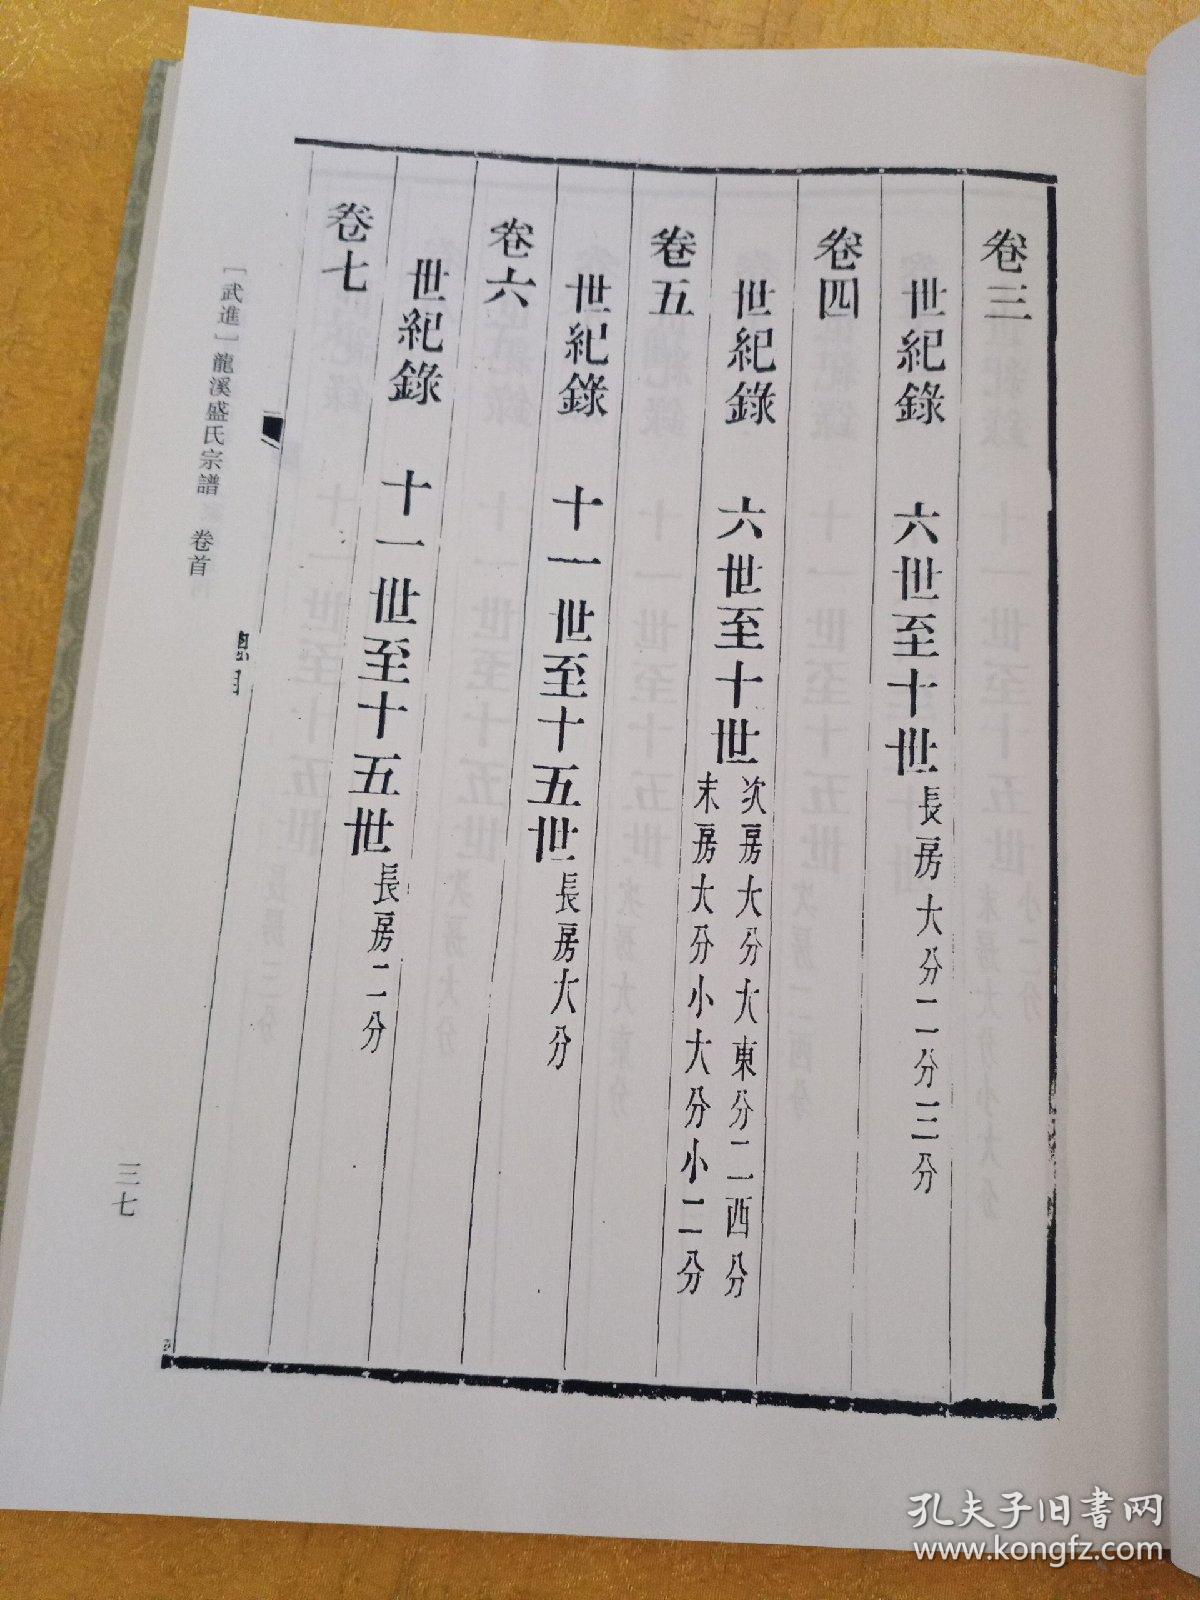 卷三
世紀錄　六世至十世長房大分二分三分
卷四
世紀錄　六世至十世次房大分大東分二西分
末房大分小大分小二分
卷五
世紀錄　十一世至十五世長房大分
卷六
世紀錄　十一世至十五世長房二分
卷七
總目
［武進］龍溪盛氏宗譜　卷首
三七
孔夫子旧書网
www.kongfz.com